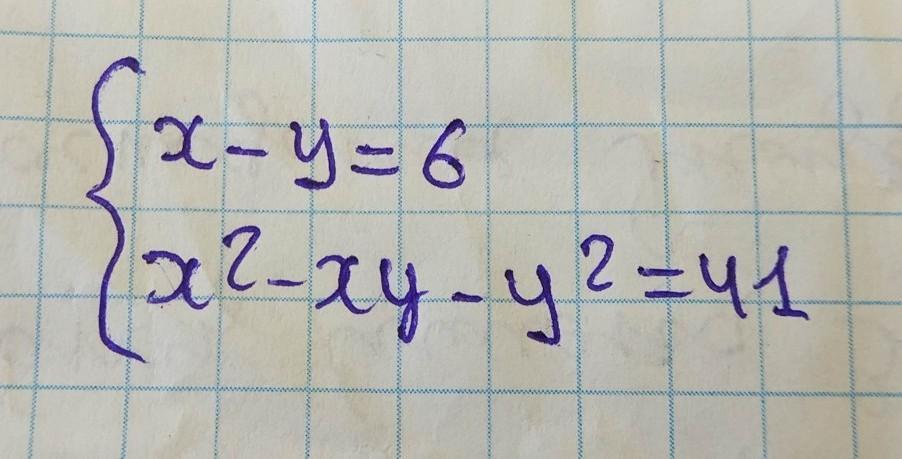 x - y = 6
x² - xy - y² = 41